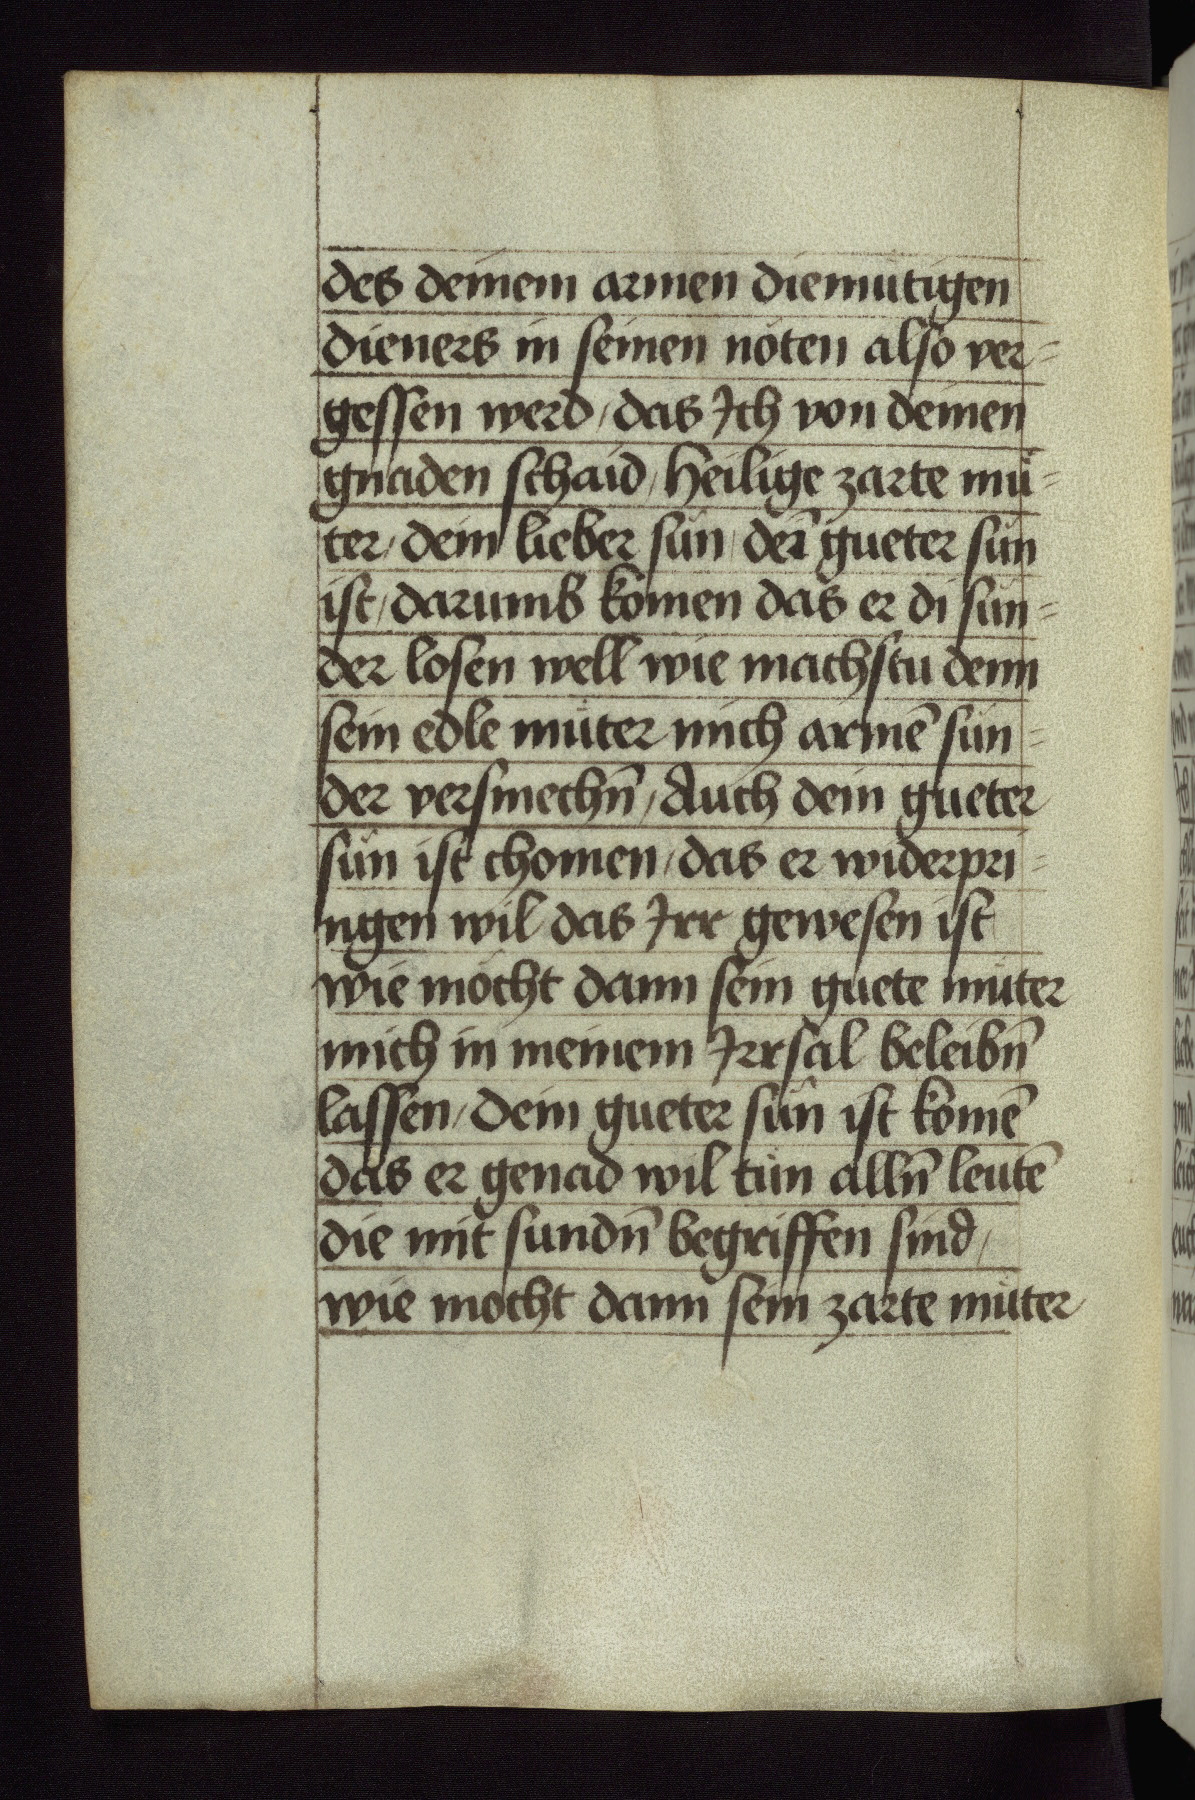 des deinem armen diemutigen
dieners in seinen nöten also ver=
gessen werd / das Ich von deinen
gnaden schaid / Heilige zarte mů=
ter / dein lieber sůn / der̄ gueter sůn
ist / darumb komen das er di sun=
der losen well wie machstu denn
sein edle můter mich armē sun=
der versmechn̄ / Auch dein gueter
sůn ist chomen / das er widerpri=
ngen wil das Irr gewesen ist
wie möcht dann sein guete můter
mich in meinem Irrsal beleibn̄
lassen / Dein gueter sůn ist komē
das er genad wil tůn alln̄ leutē
die mit sundn̄ begriffen sind /
wie mocht dann sein zarte můter